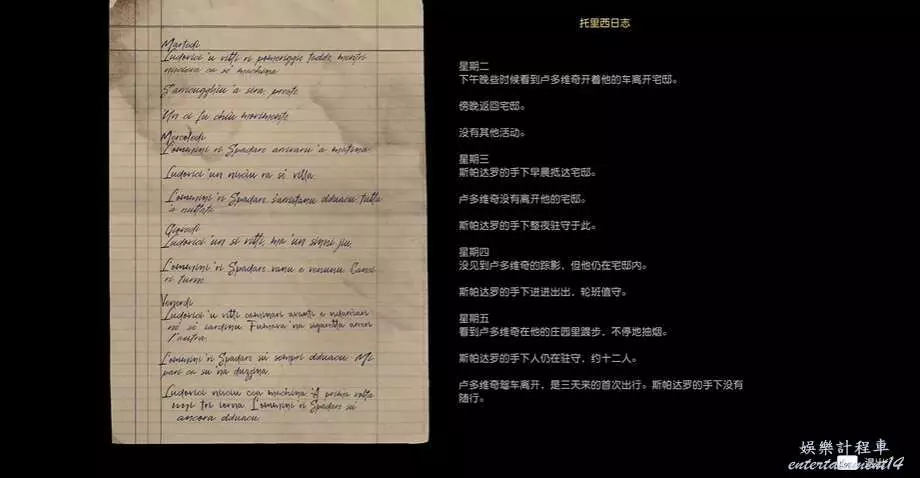 Martedì
Ludovici 'u vitti ri pomeriggiu
nisciera ca so' machina
S'arricugghiu 'a sira, presto
Un ci fu chiù movimento
Mercoledì
L'omini 'ri Spadaro arrivaru 'a matina
Ludovici 'un nisciu ra so' villa
L'omini 'ri Spadaro dduocu tutta
'a nuttata
Giovedì
Ludovici 'un si vitti, ma 'un sinni jiu
L'omini 'ri Spadaro vanu e venunu
ri turno
Venerdì
Ludovici 'u vitti caminari avanti e
Fumava na sigaretta
l'autra
L'omini 'ri Spadaro su sempri dduocu
pari ca su na duzzina
Ludovici nisciu machina 'A prima volta
L'omini 'ri Spadaro su
ancora dduocu
托里西日志
星期二
下午晚些时候看到卢多维奇开着他的车离开宅邸。
傍晚返回宅邸。
没有其他活动。
星期三
斯帕达罗的手下早晨抵达宅邸。
卢多维奇没有离开他的宅邸。
斯帕达罗的手下整夜驻守于此。
星期四
没见到卢多维奇的踪影，但他仍在宅邸内。
斯帕达罗的手下进进出出，轮班值守。
星期五
看到卢多维奇在他的庄园里踱步，不停地抽烟。
斯帕达罗的手下人仍在驻守，约十二人。
卢多维奇驾车离开，是三天来的首次出行。斯帕达罗的手下没有
随行。
娛樂計程車
entertainment14